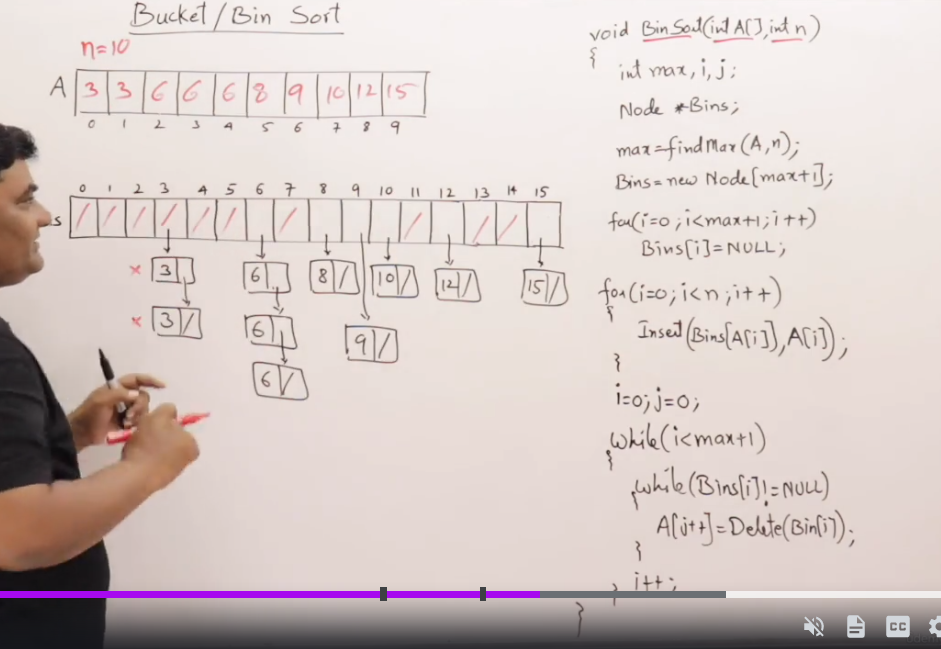 Bucket/Bin Sort
n=10
A 3 3 6 6 6 8 9 10 12 15
0 1 2 3 4 5 6 7 8 9
0 1 2 3 4 5 6 7 8 9 10 11 12 13 14 15
s / / / / / / / / / /
x 3 6 8/ 10/ 12/ 15/
x 3/ 6 9/
6/
void BinSort(int A[],int n)
{
int max,i,j;
Node *Bins;
max=findMax(A,n);
Bins=new Node[max+1];
for(i=0;i<max+1;i++)
Bins[i]=NULL;
for(i=0;i<n;i++)
{
Insert(Bins[A[i]],A[i]);
}
i=0;j=0;
while(i<max+1)
{
while(Bins[i]!=NULL)
{
A[j++]=Delete(Bin[i]);
}
i++;
}
}
CC